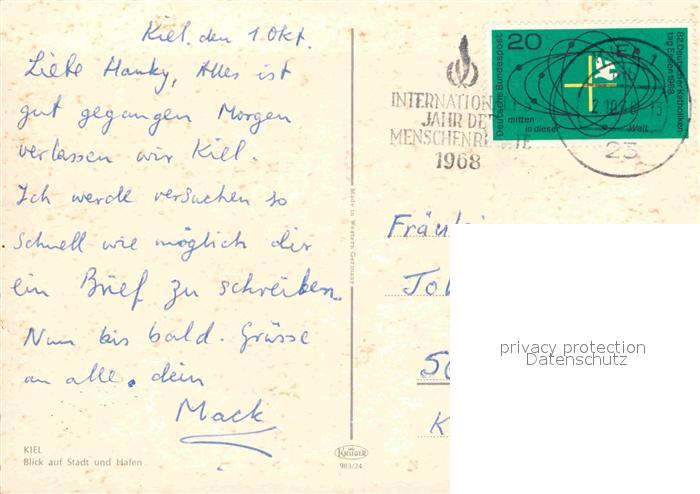 Kiel, den 1. Okt.
Liebe Hanky, Alles ist
gut gegangen Morgen
verlassen wir Kiel.
Ich werde versuchen so
schnell wie möglich dir
ein Brief zu schreiben.
Nun bis bald. Grüsse
an alle. dein
Mack
KIEL
Blick auf Stadt und Hafen
Made in Western Germany
KRÜGER
983/24
INTERNATION
JAHR DE
MENSCHENRE TE
1968
20
Deutsche Bundespost
82. Deutscher Katholiken
tag Essen 1968
mitten
in dieser Welt
KIEL 1
2.10.68-13
23
Fräulei
To
privacy protection
Datenschutz
K